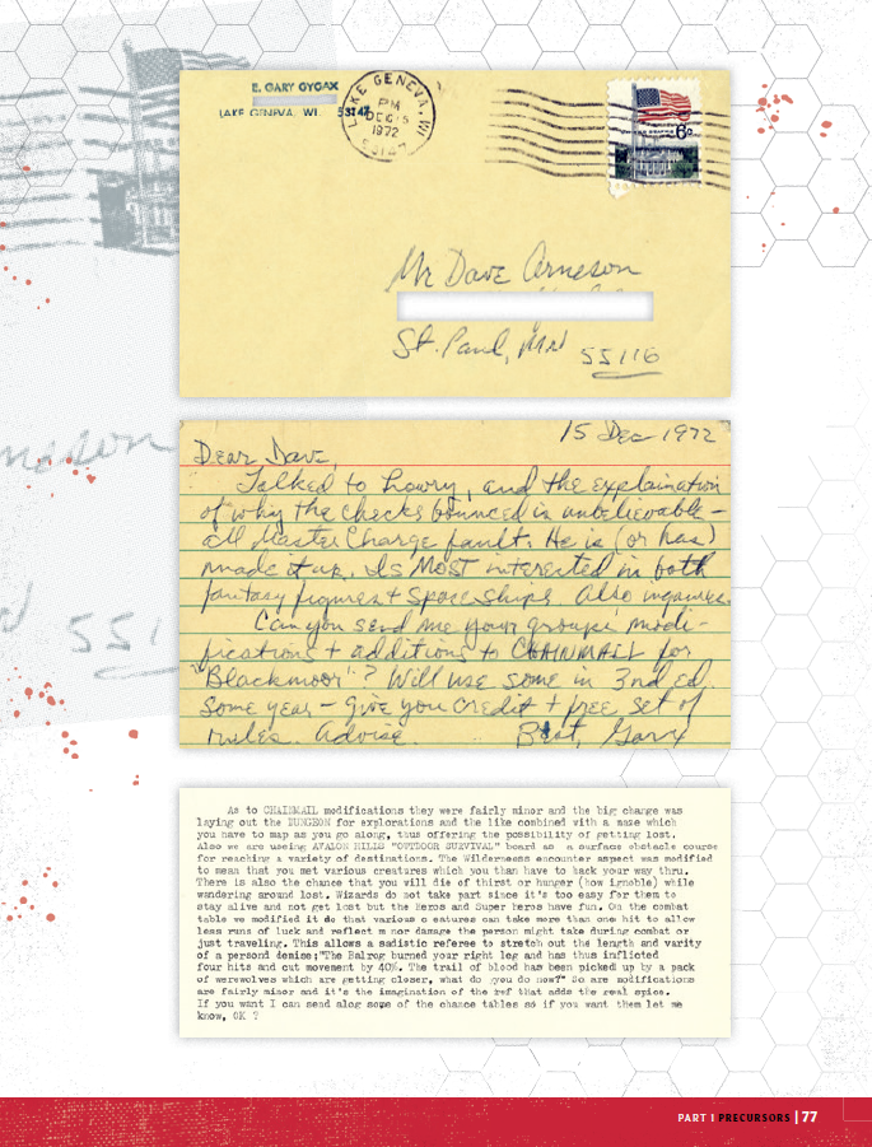 E. GARY GYGAX
LAKE GENEVA, WI. 53147
LAKE GENEVA, WI
PM
DEC 15
1972
53147
6c
Mr Dave Arneson
St. Paul, MN 55116
15 Dec 1972
Dear Dave,
Talked to Lowry, and the explaination
of why the checks bounced is unbelievable -
all Master Charge fault. He is (or has)
made it up. Is MOST interested in both
fantasy figures + space ships. Also inquiries.
Can you send me your groups modi-
fications + additions to CHAINMAIL for
"Blackmoor"? Will use some in 3nd ed.
some year - give you credit + free set of
rules. Advise. Best, Gary
As to CHAINMAIL modifications they were fairly minor and the big change was
laying out the DUNGEON for explorations and the like combined with a maze which
you have to map as you go along, thus offering the possibility of getting lost.
Also we are useing AVALON HILLS "OUTDOOR SURVIVAL" board as a surface obstacle course
for reaching a variety of destinations. The Wilderness encounter aspect was modified
to mean that you met various creatures which you than have to hack your way thru.
There is also the chance that you will die of thirst or hunger (how ignoble) while
wandering around lost. Wizards do not take part since it's too easy for them to
stay alive and not get lost but the Heros and Super heros have fun. On the combat
table we modified it so that various c eatures can take more than one hit to allow
less runs of luck and reflect m nor damage the person might take during combat or
just traveling. This allows a sadistic referee to stretch out the length and varity
of a persons demise:"The Balrog burned your right leg and has thus inflicted
four hits and cut movement by 40%. The trail of blood has been picked up by a pack
of werewolves which are getting closer, what do you do now?" So are modifications
are fairly minor and it's the imagination of the ref that adds the real spice.
If you want I can send alog some of the chance tables so if you want them let me
know, OK ?
PART 1 PRECURSORS | 77